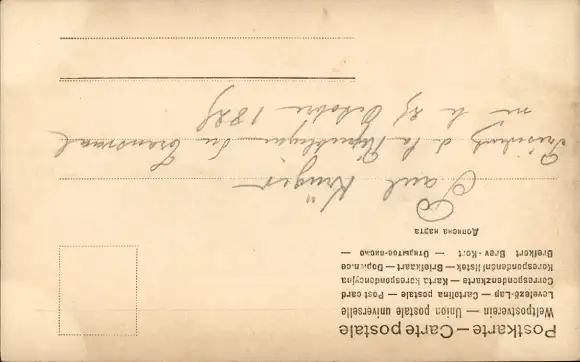 Postkarte — Carte postale
Weltpostverein — Union postale universelle
Levelező-Lap — Cartolina postale — Post card
Correspondenzkarte — Karta korespondencyjna
Korespondenční lístek — Briefkaart — Dopisnice
Brefkort Brev-Kort — Открытое письмо —
Дописна карта
Paul Krüger
Président de la République du Transvaal
né le 27 Octobre 1825